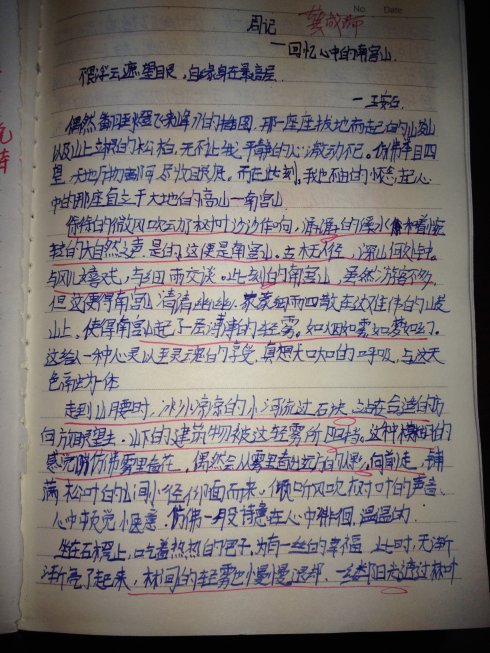 No.    Date
周记    龚敬卿
——回忆心中的南宫山
不畏浮云遮望眼,自缘身在最高层。
——王安石
偶然翻到燕飞峰的插图,那一座座拔地而起的山峦
以及山上立根的松柏,无不让我平静的心激动不已。
望,天地万物,尽收眼底。而在此刻,我也不由的怀念起心
中的那座自立于大地的高山—南宫山。
微风吹动了树叶沙沙作响,潺潺的溪水伴着
大自然之声,是的,这便是南宫山。古木无人径,深山何处钟。
与风儿嬉戏,与细雨交谈。此刻的南宫山,虽然游客不多,
但这便得南宫山清清幽幽。蒙蒙细雨四散在这雄伟的山峦
山上,使得南宫山起了一层薄薄的轻雾。如烟如雾如梦如幻。
这给人一种心灵以至灵魂的享受,真想大口大口的呼吸,与这天
色融为一体
走到山腰时,冰冰凉凉的小河流过石块,站在台道的方
向放眼望去,山下的建筑物被这轻雾所阻挡。这种模糊的
感觉仿佛雾里看花,偶然会从雾里看出远方的人影,向前走,铺
满松叶的山间小径仰面而来。倾听风吹树叶的声音,
心中顿觉小惬意。仿佛一段诗意在心中徘徊,温温的
坐在石凳上,吃着热热的包子,为有一丝的幸福。此时,天渐
渐亮了起来,林间的轻雾也慢慢退却,一缕阳光透过林叶